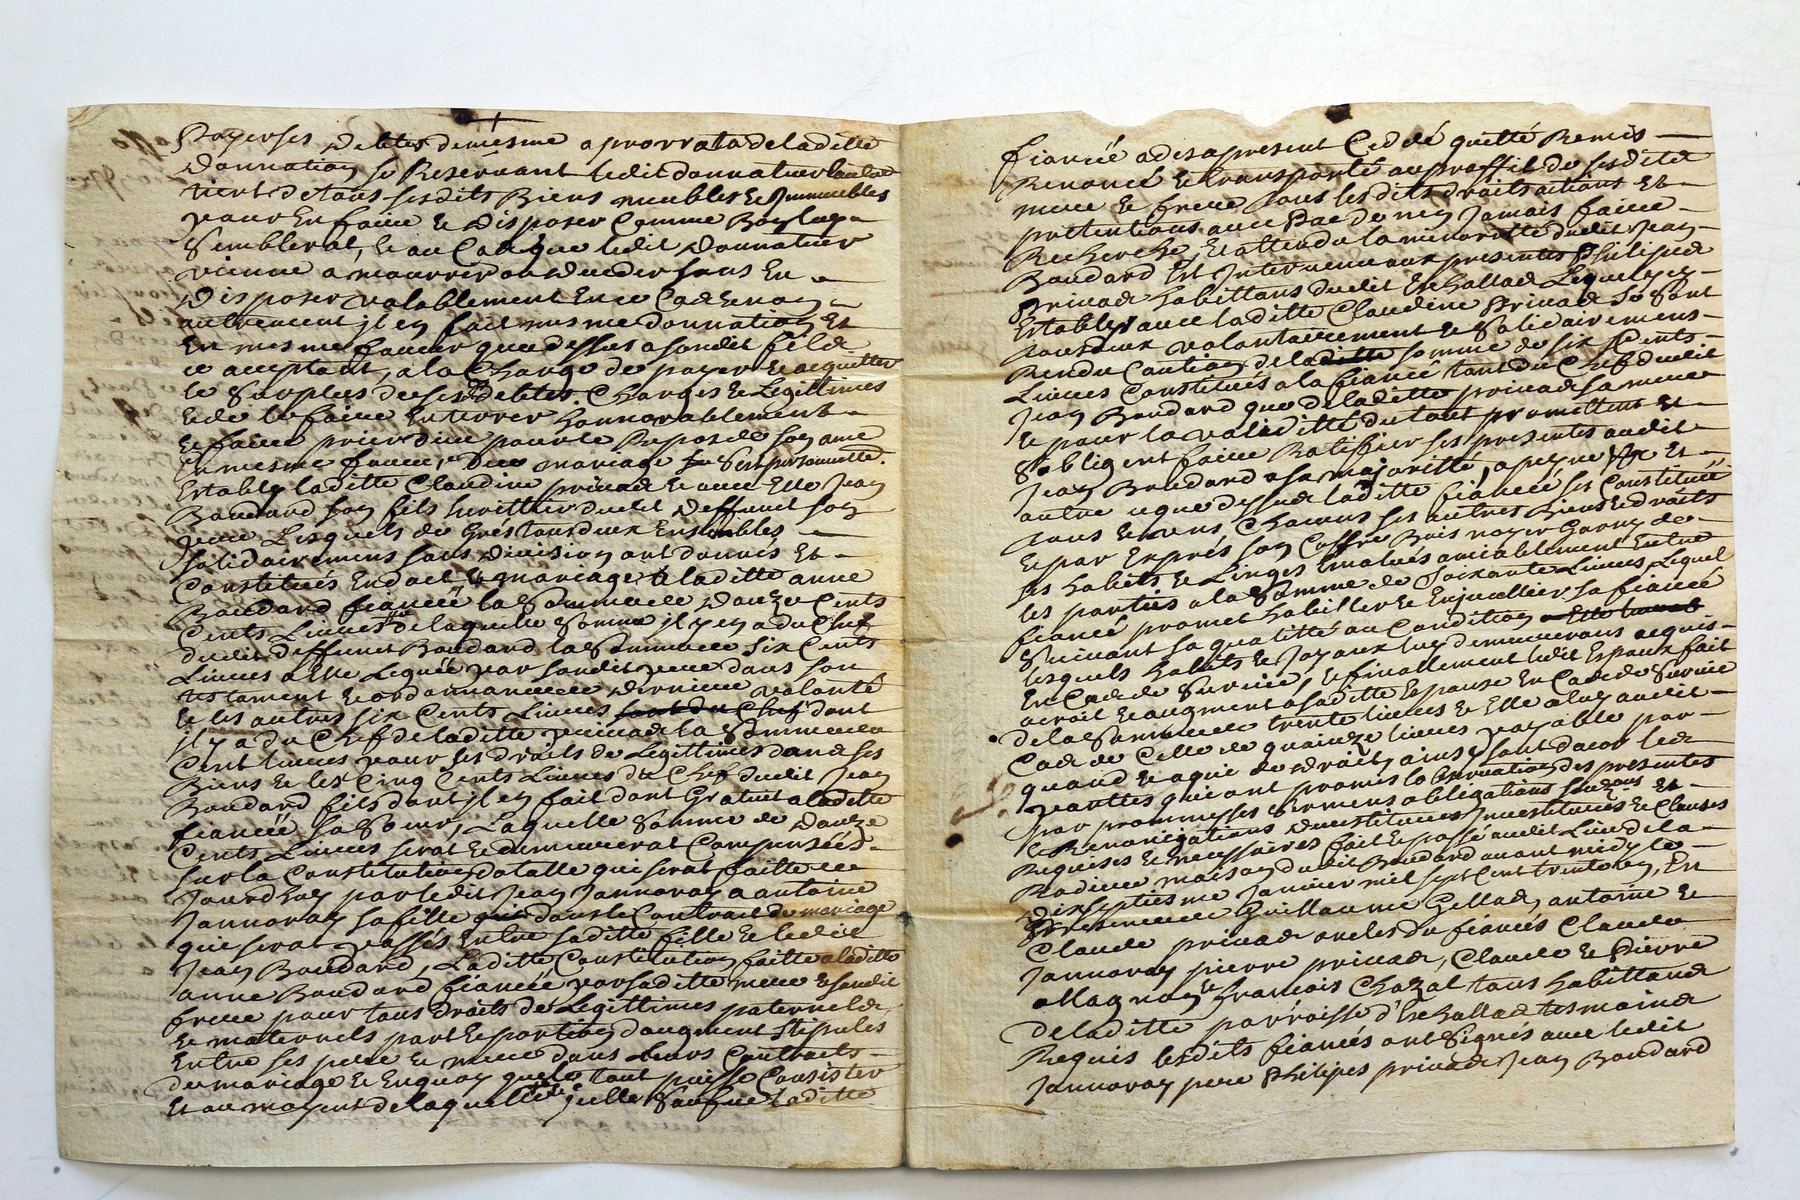 Payer ses debtes de mesme a prorrata de laditte
donnation se Reservant ledit donnateur
de tous sesdits Biens meubles et Immeubles
pour En faire et disposer Comme Bon luy
Semblerat, Et au Cas que ledit donnateur
vienne a mourrir ou deceder sans En
disposer valablement En ce Cas Et non
autrement il en fait mesme donnation Et
En mesme faveur que dessus a sondit fils
ce acceptant, a la Charge de payer Et acquitter
le Surplus de ses debtes Charges et Legittimes
Et de le faire Enterrer honnorablement
Et faire prier dieu pour le Repos de son ame
En mesme faveur de mariage S'est personnellement
Establÿ laditte Claudine privas Et avec Elle Jean
Boudard son fils heritier dudit deffunct son
pere Lesquels de Gré tous deux Ensembles
solidairement sans division ont donnés Et
Constitués En dot de mariage a laditte anne
Boudard fiancée la Somme de Douze Cents
Cents Livres de laquelle Somme il y en a du Chef
dudit deffunct Boudard la Somme de Six Cents
Livres a Elle Leguée par sondit pere dans son
testament Et ordonnance de derniere volonté
Et les autres six Cents Livres sont du Chef dont
il y a du Chef de laditte privas la Somme de
Cent livres pour ses droits de Legittimes dans ses
Biens Et les Cinq Cents Livres du Chef dudit Jean
Boudard fils dont il en fait dont Gratuit a laditte
fiancée sa Soeur, Laquelle Somme de Douze
Cents Livres serat Et demeurerat Compensée
sur la Constitution dotalle qui serat faitte ce
Jourdhuy par ledit Jean Jannoray a antoine
Jannoray sa fille dans le Contrat de mariage
qui serat passés Entre saditte fille Et ledit
Jean Boudard, Laditte Constitution faitte a laditte
anne Boudard fiancée par saditte mere Et sondit
frere pour tous droits de Legittimes paternels
Et maternels part Et portion d'augment stipulés
Entre ses pere Et mere dans Leurs Contracts
de mariage Et En quoy que le tout puisse Consister
Et au moyent de laquelle laditte
fiancée a des a present Ceddé quitté Remis
Renoncé Et transporté au proffit de sesdits
mere Et frere tous lesdits droits actions Et
prettentions avec Pac de n'en Jamais faire
Recherche, Et attendu la minorité dudit Jean
Boudard Est Intervenu aux presentes Philipes
Privas habittans dudit Lequel
Establÿ avec laditte Claudine Privas Se Sont
tous deux volontairement Et Solidairement
Rendu Caution de laditte somme de six Cents
Livres Constitués a la fiancée tant du Chef dudit
Jean Boudard que de laditte privas sa mere
Et pour la validitté du tout promettent Et
S'obligent faire Ratiffier ses presentes audit
Jean Boudard a sa majoritté, a peyne Et
outre ce que dessus laditte fiancée se Constitue
tous Et uns Chacuns ses autres Biens Et droits
Et par Exprés son Coffre Bois noyer Garny de
ses habits Et Linges Evalués amiablement Entre
les parties a la Somme de Soixante Livres Lequel
fiancé promet habiller Et Enjoualler sa fiancée
Suivant sa qualitté ou Condition
Lesquels habits Et Joyaux luy demeurerons acquis
En Cas de Survie, Et finallement ledit Espoux fait
acroit Et augment a saditte Espouse En Cas de Survie
de la Somme de trente livres Et Elle a luy audit
Cas de Celle de quainze livres payable par
quand Et a qui de droit, ainsy sont dacor les
partties qui ont promis lobservation des presentes
par prommesses serments obligations Et
Renonciations Et Clauses
Requises Et necessaires fait Et passé audit Lieu de la
maison dudit Boudard avant midy le
dixseptiesme Janvier mil sept Cent trente En
presence de Guillaume antoine Et
Claude privas oncles du fiancés Claude
Jannoray pierre privas, Claude Et Pierre
allagnon Et françois Chazal tous habittans
de laditte parroisse tesmoins
Requis lesdits fiancés ont Signés avec ledit
Jannoray pere Philipes privas Jean Boudard